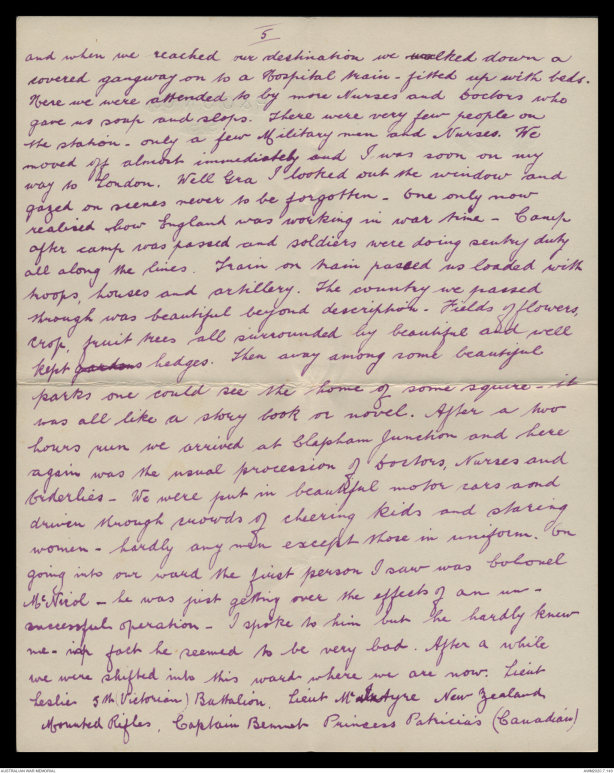 5
and when we reached our destination we walked down a
covered gangway on to a Hospital train - fitted up with beds.
Here we were attended to by more Nurses and Doctors who
gave us soup and slops. There were very few people on
the station - only a few Military men and Nurses. We
moved off almost immediately and I was soon on my
way to London. Well Gra I looked out the window and
gazed on scenes never to be forgotten - One only now
realised how England was working in war time - Camp
after camp was passed and soldiers were doing sentry duty
all along the lines. Train on train passed us loaded with
troops, horses and artillery. The country we passed
through was beautiful beyond description - Fields of flowers,
crop, fruit trees all surrounded by beautiful and well
kept gardens hedges. Then away among some beautiful
parks one could see the home of some squire - it
was all like a story book or novel. After a two
hours run we arrived at Clapham Junction and here
again was the usual procession of Doctors, Nurses and
Orderlies - We were put in beautiful motor cars aond
driven through crowds of cheering kids and staring
women - hardly any men except those in uniform. On
going into our ward the first person I saw was Colonel
McNicol - he was just getting over the effects of an un-
successful operation - I spoke to him but he hardly knew
me - in fact he seemed to be very bad. After a while
we were shifted into this ward where we are now. Lieut
Leslie 5th (Victorian) Battalion, Lieut McIntyre New Zealand
Mounted Rifles, Captain Bennet Princess Patricia's (Canadian)
AUSTRALIAN WAR MEMORIAL